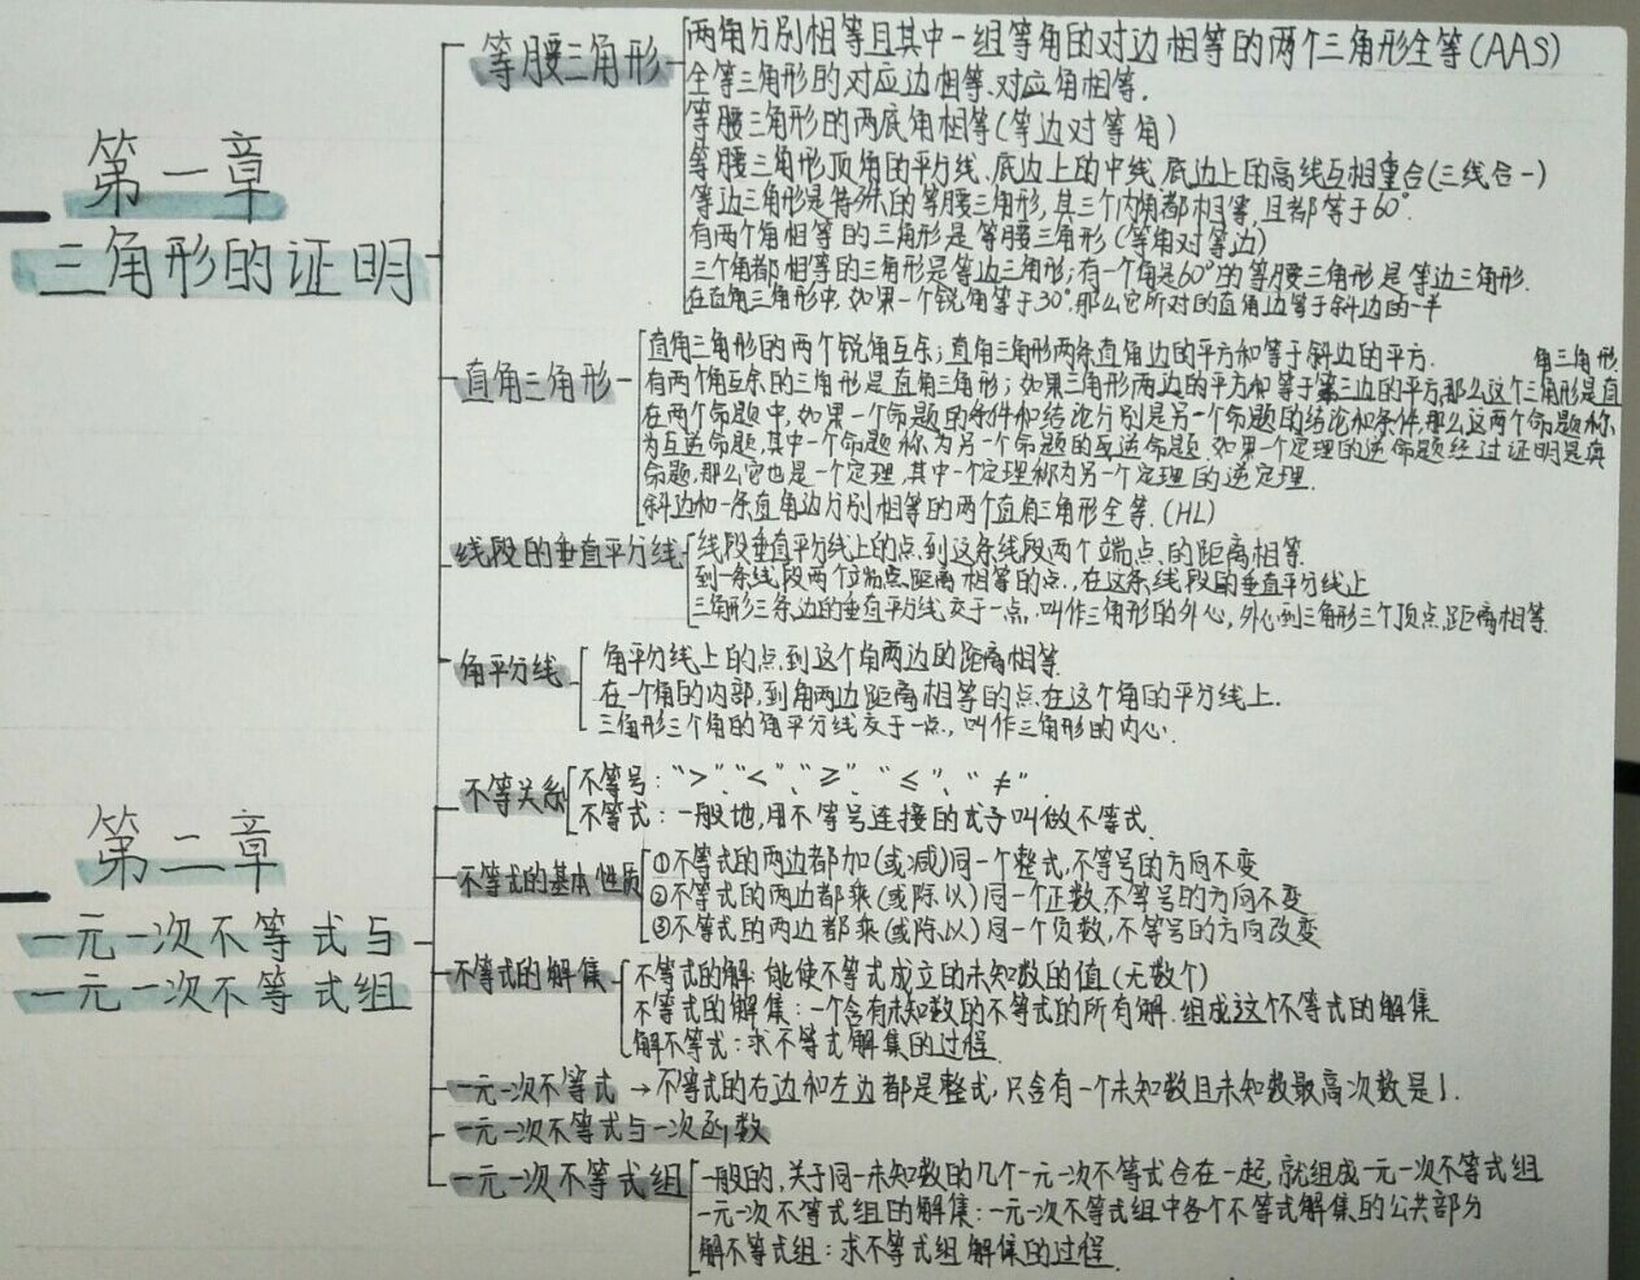 第一章
三角形的证明
等腰三角形
两角分别相等且其中一组等角的对边相等的两个三角形全等(AAS)
全等三角形的对应边相等、对应角相等.
等腰三角形的两底角相等(等边对等角)
等腰三角形顶角的平分线、底边上的中线、底边上的高线互相重合(三线合一)
等边三角形是特殊的等腰三角形,其三个内角都相等,且都等于60°.
有两个角相等的三角形是等腰三角形(等角对等边)
三个角都相等的三角形是等边三角形;有一个角是60°的等腰三角形是等边三角形.
在直角三角形中,如果一个锐角等于30°,那么它所对的直角边等于斜边的一半
直角三角形
直角三角形的两个锐角互余;直角三角形两条直角边的平方和等于斜边的平方.
有两个角互余的三角形是直角三角形;如果三角形两边的平方和等于第三边的平方,那么这个三角形是直
角三角形.
在两个命题中,如果一个命题的条件和结论分别是另一个命题的结论和条件,那么这两个命题称
为互逆命题,其中一个命题称为另一个命题的互逆命题.如果一个定理的逆命题经过证明是真
命题,那么它也是一个定理,其中一个定理称为另一个定理的逆定理.
斜边和一条直角边分别相等的两个直角三角形全等.(HL)
线段的垂直平分线
线段垂直平分线上的点到这条线段两个端点的距离相等.
到一条线段两个端点距离相等的点,在这条线段的垂直平分线上
三角形三条边的垂直平分线交于一点,叫作三角形的外心,外心到三角形三个顶点距离相等.
角平分线
角平分线上的点到这个角两边的距离相等.
在一个角的内部,到角两边距离相等的点在这个角的平分线上.
三角形三个角的角平分线交于一点,叫作三角形的内心.
第二章
一元一次不等式与
一元一次不等式组
不等关系
不等号:“>”、“<”、“≥”、“≤”、“≠”.
不等式:一般地,用不等号连接的式子叫做不等式.
不等式的基本性质
①不等式的两边都加(或减)同一个整式,不等号的方向不变
②不等式的两边都乘(或除以)同一个正数,不等号的方向不变
③不等式的两边都乘(或除以)同一个负数,不等号的方向改变
不等式的解集
不等式的解:能使不等式成立的未知数的值(无数个)
不等式的解集:一个含有未知数的不等式的所有解.组成这个不等式的解集
解不等式:求不等式解集的过程.
一元一次不等式→不等式的右边和左边都是整式,只含有一个未知数且未知数最高次数是1.
一元一次不等式与一次函数
一元一次不等式组
一般的,关于同一未知数的几个一元一次不等式合在一起,就组成一元一次不等式组
一元一次不等式组的解集:一元一次不等式组中各个不等式解集的公共部分
解不等式组:求不等式组解集的过程.